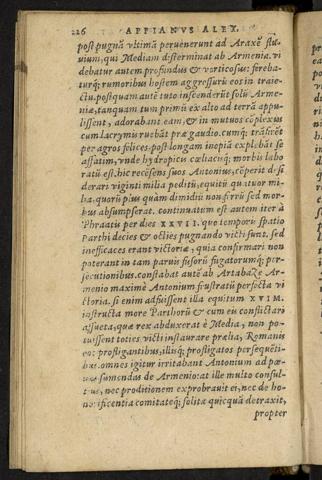 226 APPIANVS ALEX.
post pugnã vltimã peruenerunt ad Araxẽ flu-
uium, qui Mediam disterminat ab Armenia. vi
debatur autem profundus & vorticosus: fereba-
turq; rumoribus hostem aggressurũ eos in traie-
ctu. postquam autẽ tuto inscenderũt solũ Arme-
niæ, tanquam tum primũ ex alto ad terrã appu-
lissent, adorabant eam, & in mutuos cõplexus
cum lacrymis ruebãt præ gaudio. cumq; trãsirẽt
per agros felices. post longam inopiã explebãt se
affatim, vnde hydropicis cœliacisq; morbis labo
ratũ est. hic recẽsens suos Antonius, cõperit d-si
derari viginti milia peditũ, equitũ quatuor mi-
lia. quorũ plus quàm dimidiũ non ferrũ sed mor-
bus absumpserat. continuatum est autem iter à
Phraatis per dies XXVII. quo temporis spatio
Parthi decies & octies pugnando victi sunt. sed
inefficaces erant victoriæ, quia confirmari non
poterant in tam paruis fusorũ fugatorumq; per-
secutionibus. constabat autẽ ab Artabaze Ar-
menio maximè Antonium frustratũ perfecta vi
ctoria. si enim adfuissent illa equitum XVI M.
instructa more Parthorũ & cum eis conflictari
assueta, quæ rex abduxerat è Media, non po-
tuissent toties victi instaurare prælia, Romanis
eos profligantibus, illisq; profligatos persequẽti-
bus. omnes igitur irritabant Antonium ad pœ-
nas sumendas de Armenio: at ille multo consul-
tius, nec proditionem exprobrauit ei, nec de ho-
norificentia comitateq; solita quicquã detraxit,
propter